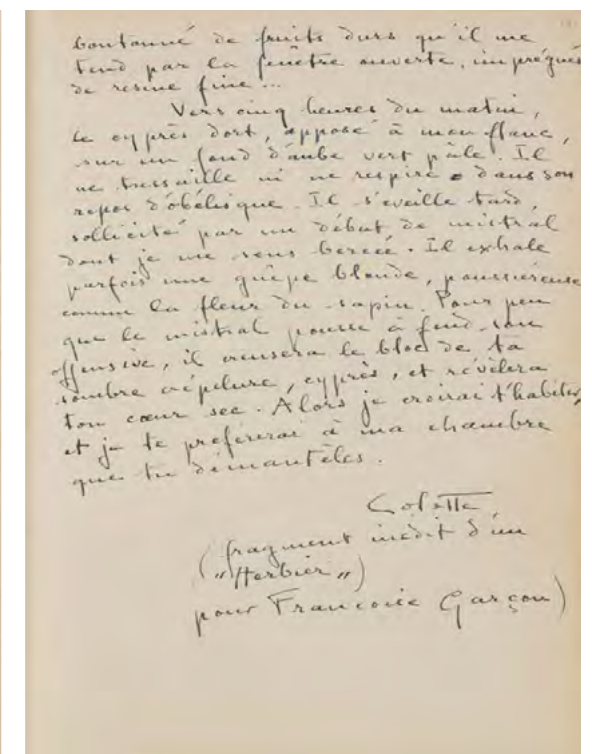 boutonné de fruits durs qu'il me
tend par la fenêtre ouverte, imprégnés
de résine fine...
Vers cinq heures du matin,
le cyprès dort, apposé à mon flanc,
sur un fond d'aube vert pâle. Il
ne tressaille ni ne respire dans son
repos d'obélisque. Il s'éveille tard,
sollicité par un début de mistral
dont je me sens bercée. Il exhale
parfois une guêpe blonde, poussiéreuse
comme la fleur du sapin. Pour peu
que le mistral pousse à fond son
offensive, il creusera le bloc de ta
sombre crêpelure, cyprès, et révèlera
ton cœur sec. Alors je croirai t'habiter,
et je te préfèrerai à ma chambre
que tu démantèles.
Colette
(fragment inédit d'un
"Herbier")
pour Françoise Garçon)